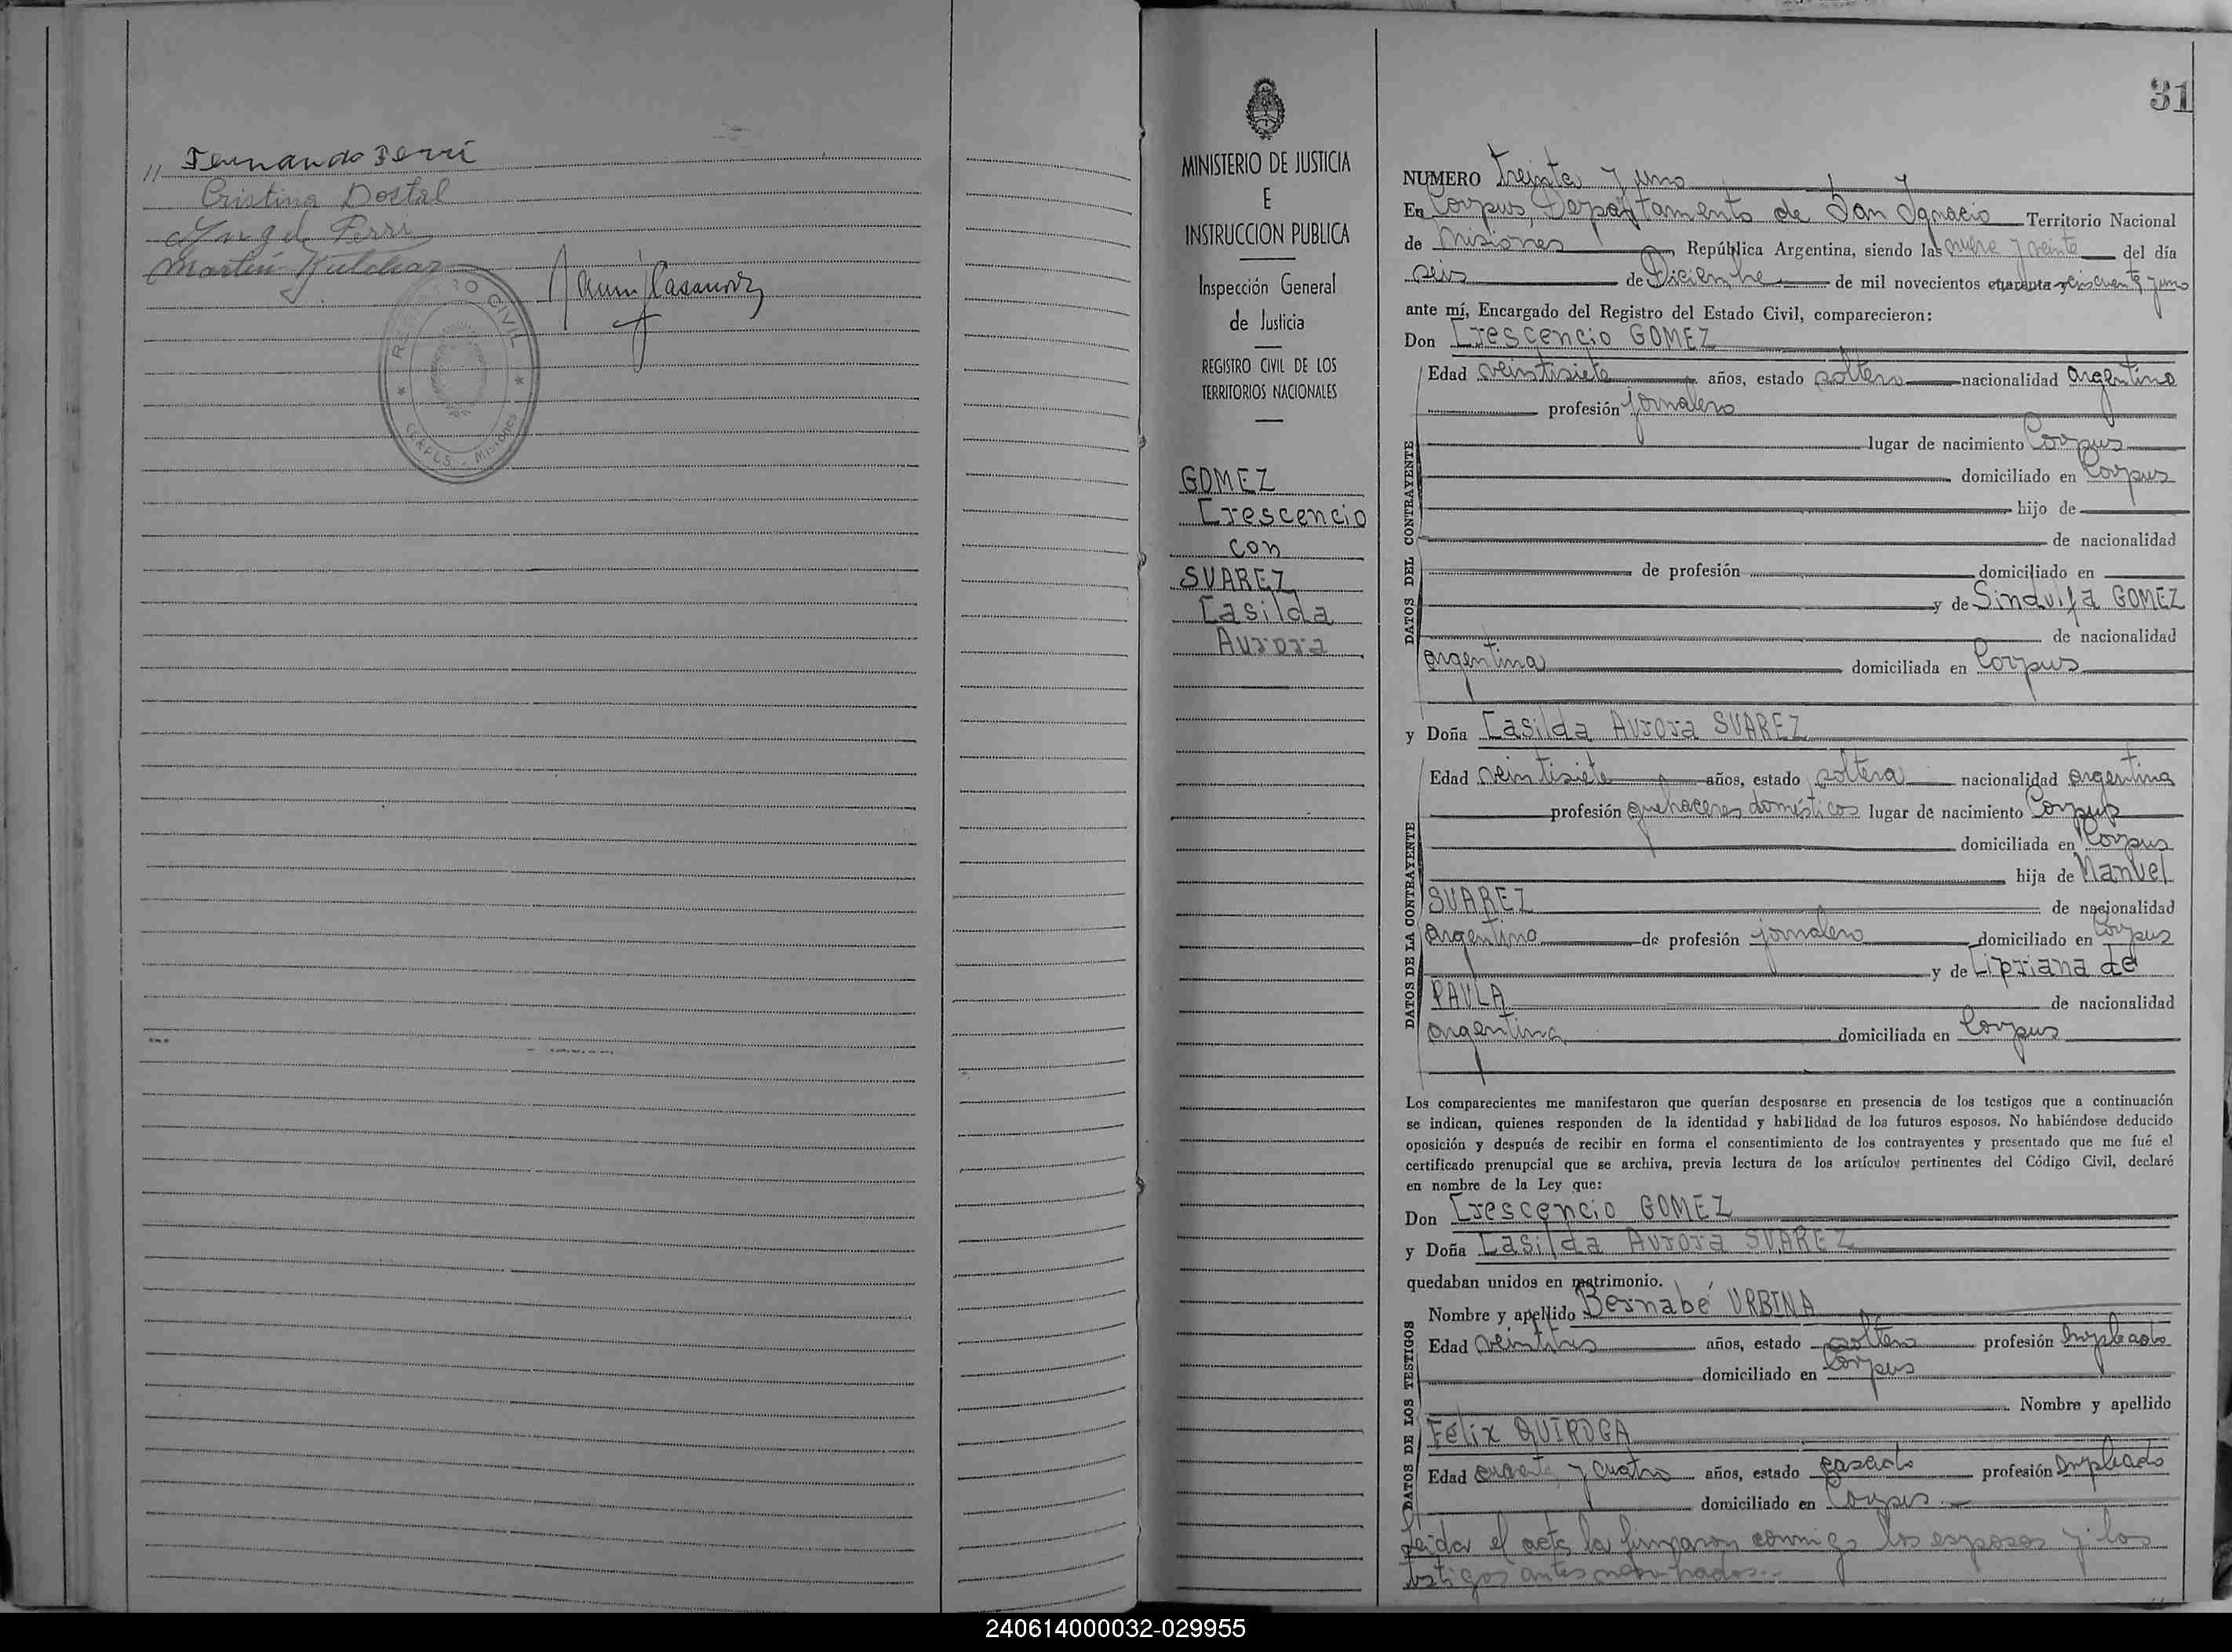 " Fernando Ferri
Cristina Dostal
Angel Ferri
Martín
REGISTRO CIVIL
Misiones
MINISTERIO DE JUSTICIA
E
INSTRUCCION PUBLICA
Inspección General
de Justicia
REGISTRO CIVIL DE LOS
TERRITORIOS NACIONALES
GOMEZ
Crescencio
con
SUAREZ
Casilda
Aurora
31
NUMERO treinta y uno
En Corpus, Departamento de San Ignacio Territorio Nacional
de Misiones, República Argentina, siendo las nueve y veinte del día
seis de Diciembre de mil novecientos cuarenta y cincuenta y uno
ante mí, Encargado del Registro del Estado Civil, comparecieron:
Don Crescencio GOMEZ
DATOS DEL CONTRAYENTE
Edad veintisiete años, estado soltero nacionalidad argentino
profesión jornalero
lugar de nacimiento Corpus
domiciliado en Corpus
hijo de
de nacionalidad
de profesión domiciliado en
y de Sindulfa GOMEZ
de nacionalidad
argentina domiciliada en Corpus
y Doña Casilda Aurora SUAREZ
DATOS DE LA CONTRAYENTE
Edad veintisiete años, estado soltera nacionalidad argentina
profesión quehaceres domésticos lugar de nacimiento Corpus
domiciliada en Corpus
hija de Manuel
SUAREZ de nacionalidad
argentino de profesión jornalero domiciliado en Corpus
y de Cipriana de
PAULA de nacionalidad
argentina domiciliada en Corpus
Los comparecientes me manifestaron que querían desposarse en presencia de los testigos que a continuación
se indican, quienes responden de la identidad y habilidad de los futuros esposos. No habiéndose deducido
oposición y después de recibir en forma el consentimiento de los contrayentes y presentado que me fué el
certificado prenupcial que se archiva, previa lectura de los artículos pertinentes del Código Civil, declaré
en nombre de la Ley que:
Don Crescencio GOMEZ
y Doña Casilda Aurora SUAREZ
quedaban unidos en matrimonio.
DATOS DE LOS TESTIGOS
Nombre y apellido Bernabé URBINA
Edad veintitres años, estado soltero profesión Empleado
domiciliado en Corpus
Nombre y apellido
Félix QUIROGA
Edad cuarenta y cuatro años, estado casado profesión Empleado
domiciliado en Corpus
Leída el acta la firmaron conmigo los esposos y los
testigos antes nombrados.--
240614000032-029955